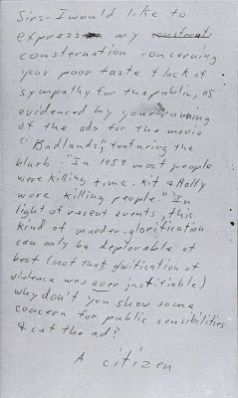 Sirs- I would like to
express my consternat
consternation concerning
your poor taste & lack of
sympathy for the public, as
evidenced by your running
of the ads for the movie
"Badlands," featuring the
blurb- "In 1959 most people
were killing time. Kit & Holly
were killing people." In
light of recent events, this
kind of murder-glorification
can only be deplorable at
best (not that glorification of
violence was ever justifiable)
why don't you show some
concern for public sensibilities
& cut the ad?
A citizen